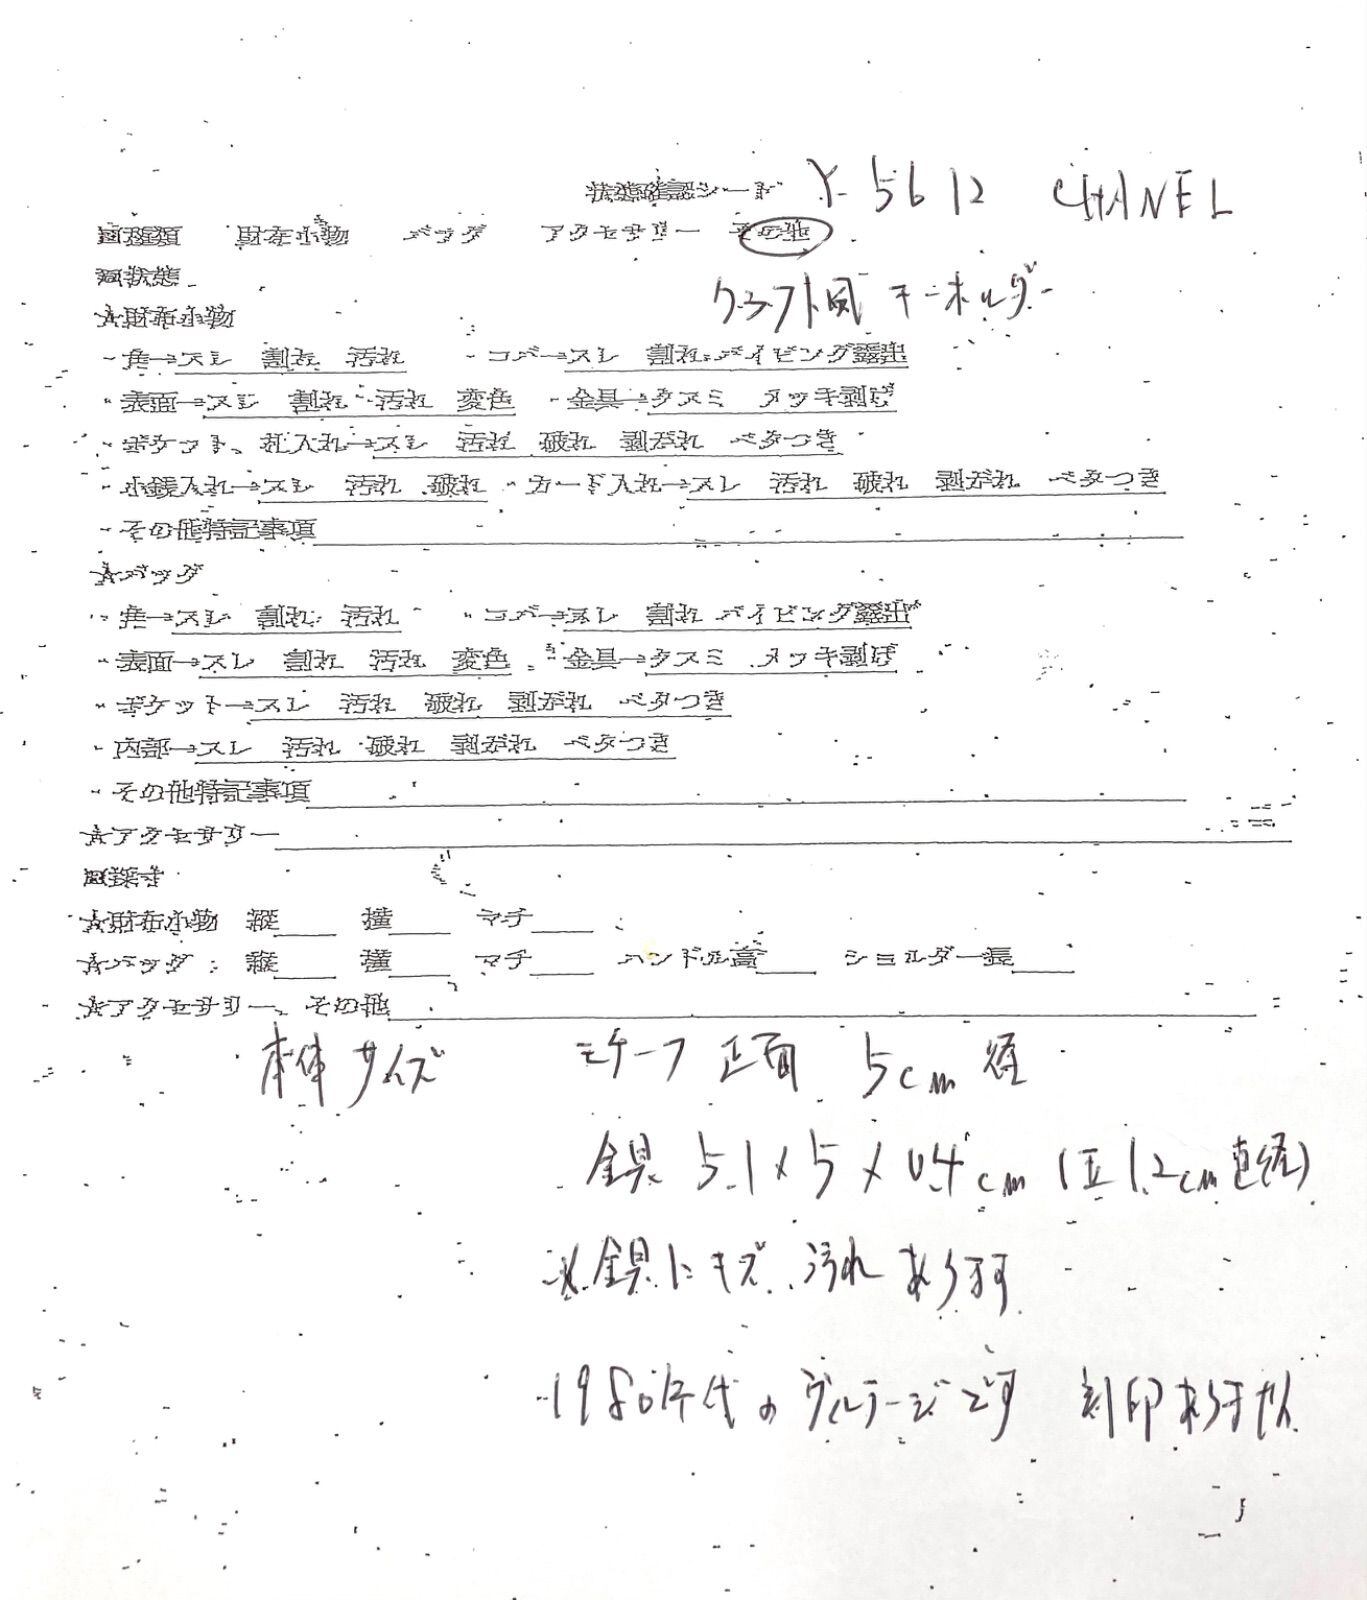 状態確認シート Y-5612 CHANEL
財布小物 バッグ アクセサリー その他
■状態
クラフト風 キーホルダー
★財布小物
・角→スレ 割れ 汚れ ・コバ→スレ 割れ パイピング露出
・表面→スレ 割れ 汚れ 変色 ・金具→クスミ メッキ剥げ
・ポケット、札入れ→スレ 汚れ 破れ 剥がれ ベタつき
・小銭入れ→スレ 汚れ 破れ ・カード入れ→スレ 汚れ 破れ 剥がれ ベタつき
・その他特記事項
★バッグ
・角→スレ 割れ 汚れ ・コバ→スレ 割れ パイピング露出
・表面→スレ 割れ 汚れ 変色 ・金具→クスミ メッキ剥げ
・ポケット→スレ 汚れ 破れ 剥がれ ベタつき
・内部→スレ 汚れ 破れ 剥がれ ベタつき
・その他特記事項
★アクセサリー
■採寸
★財布小物 縦 横 マチ
★バッグ 縦 横 マチ ハンドル高 ショルダー長
★アクセサリー、その他
本体サイズ モチーフ 正面 5cm 径
金具 5.1×5×0.4cm (玉1.2cm直径)
※金具にキズ、汚れあります
1980年代のヴィンテージです 刻印ありません